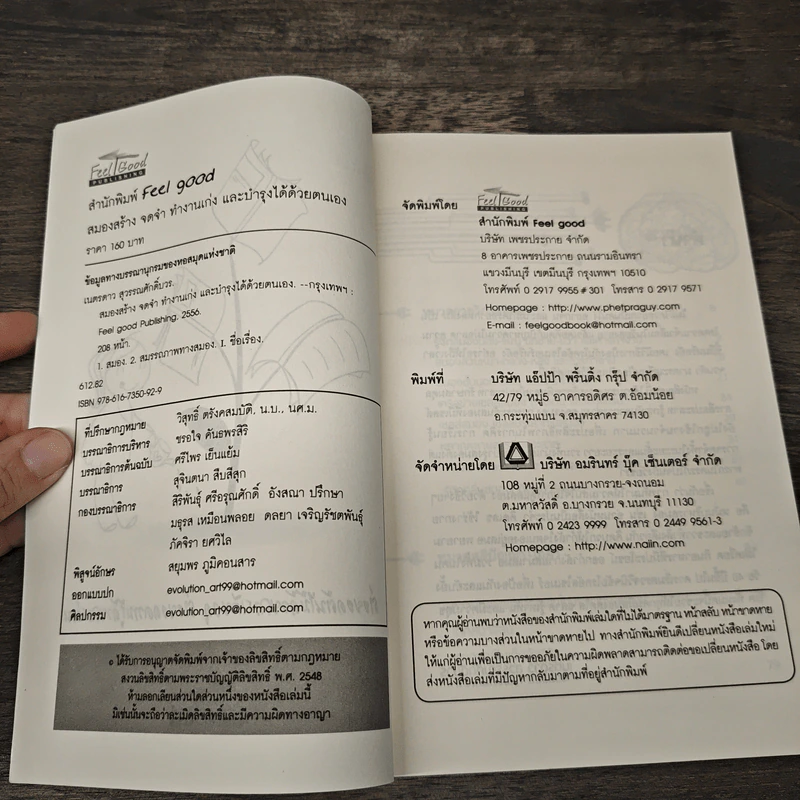 Feel Good
PUBLISHING
สำนักพิมพ์ Feel good
สมองสร้าง จดจำ ทำงานเก่ง และบำรุงได้ด้วยตนเอง
ราคา 160 บาท
ข้อมูลทางบรรณานุกรมของหอสมุดแห่งชาติ
เนตรดาว สุวรรณศักดิ์บวร.
สมองสร้าง จดจำ ทำงานเก่ง และบำรุงได้ด้วยตนเอง. --กรุงเทพฯ :
Feel good Publishing. 2556.
208 หน้า.
1. สมอง. 2. สมรรถภาพทางสมอง. I. ชื่อเรื่อง.
612.82
ISBN 978-616-7350-92-9
ที่ปรึกษากฎหมาย วิสุทธิ์ ตรังคสมบัติ, น.บ., นศ.ม.
บรรณาธิการบริหาร ชรอใจ คันธพรสิริ
บรรณาธิการต้นฉบับ ศรีไพร เย็นแย้ม
บรรณาธิการ สุจินตนา สืบสีสุก
กองบรรณาธิการ สิริพันธุ์ ศรีอรุณศักดิ์ อังสณา ปรึกษา
มธุรส เหมือนพลอย ดลยา เจริญรัชตพันธุ์
ภัคจิรา ยศวิไล
พิสูจน์อักษร สยุมพร ภูมิคอนสาร
ออกแบบปก evolution_art99@hotmail.com
ศิลปกรรม evolution_art99@hotmail.com
๏ ได้รับการอนุญาตจัดพิมพ์จากเจ้าของลิขสิทธิ์ตามกฎหมาย
สงวนลิขสิทธิ์ตามพระราชบัญญัติลิขสิทธิ์ พ.ศ. 2548
ห้ามลอกเลียนส่วนใดส่วนหนึ่งของหนังสือเล่มนี้
มิเช่นนั้นจะถือว่าละเมิดลิขสิทธิ์และมีความผิดทางอาญา
จัดพิมพ์โดย Feel Good
PUBLISHING
สำนักพิมพ์ Feel good
บริษัท เพชรประกาย จำกัด
8 อาคารเพชรประกาย ถนนรามอินทรา
แขวงมีนบุรี เขตมีนบุรี กรุงเทพฯ 10510
โทรศัพท์ 0 2917 9955 # 301 โทรสาร 0 2917 9571
Homepage : http://www.phetpraguy.com
E-mail : feelgoodbook@hotmail.com
พิมพ์ที่ บริษัท แอ๊ปป้า พริ้นติ้ง กรุ๊ป จำกัด
42/79 หมู่5 อาคารอดิศร ต.อ้อมน้อย
อ.กระทุ่มแบน จ.สมุทรสาคร 74130
จัดจำหน่ายโดย บริษัท อมรินทร์ บุ๊ค เซ็นเตอร์ จำกัด
108 หมู่ที่ 2 ถนนบางกรวย-จงถนอม
ต.มหาสวัสดิ์ อ.บางกรวย จ.นนทบุรี 11130
โทรศัพท์ 0 2423 9999 โทรสาร 0 2449 9561-3
Homepage : http://www.naiin.com
หากคุณผู้อ่านพบว่าหนังสือของสำนักพิมพ์เล่มใดที่ไม่ได้มาตรฐาน หน้าสลับ หน้าขาดหาย
หรือข้อความบางส่วนในหน้าขาดหายไป ทางสำนักพิมพ์ยินดีเปลี่ยนหนังสือเล่มใหม่
ให้แก่ผู้อ่านเพื่อเป็นการขออภัยในความผิดพลาดสามารถติดต่อขอเปลี่ยนหนังสือ โดย
ส่งหนังสือเล่มที่มีปัญหากลับมาตามที่อยู่สำนักพิมพ์